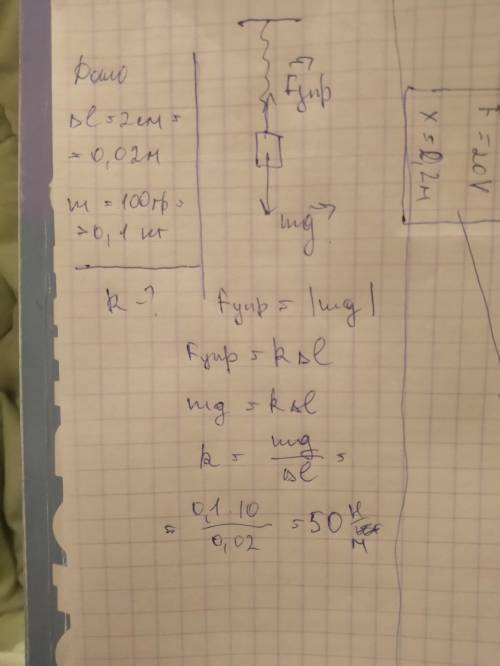 Дано
Δl = 2см =
= 0,02м
m = 100гр =
= 0,1 кг
k - ?
Fупр
mg
Fупр = |mg|
Fупр = kΔl
mg = kΔl
k = mg/Δl =
= 0,1·10/0,02 = 50 Н/м
F = 20N
x = 0,2м